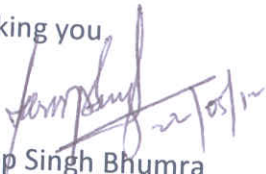 king you
22/05/12
p Singh Bhumra